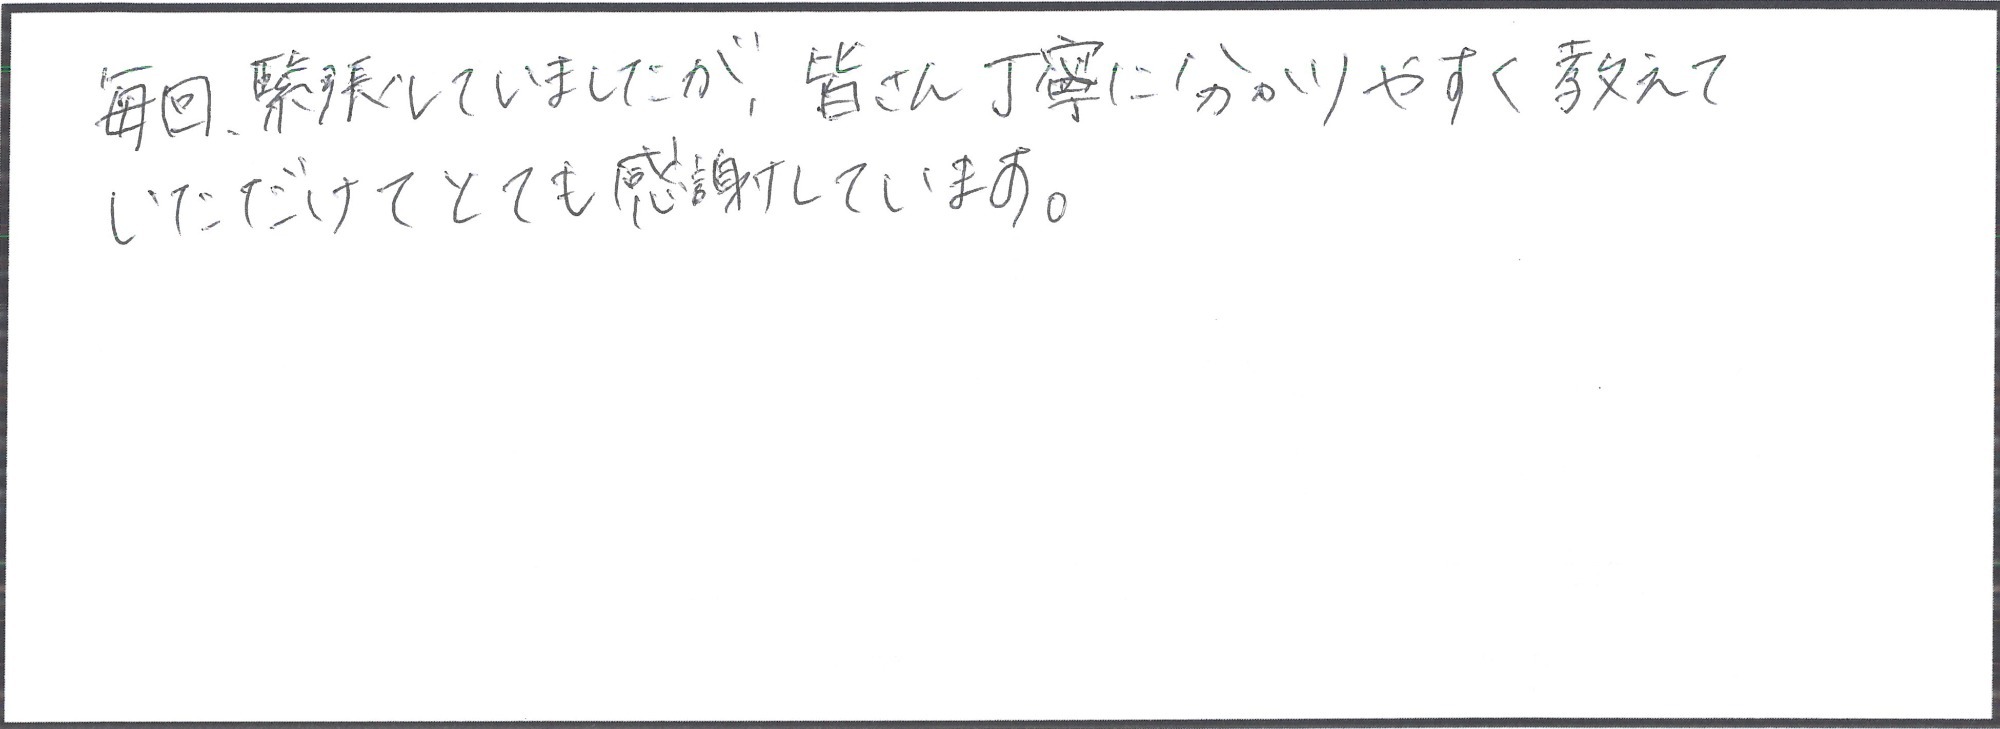 毎回、緊張していましたが、皆さん丁寧に分かりやすく教えて
いただけてとても感謝しています。